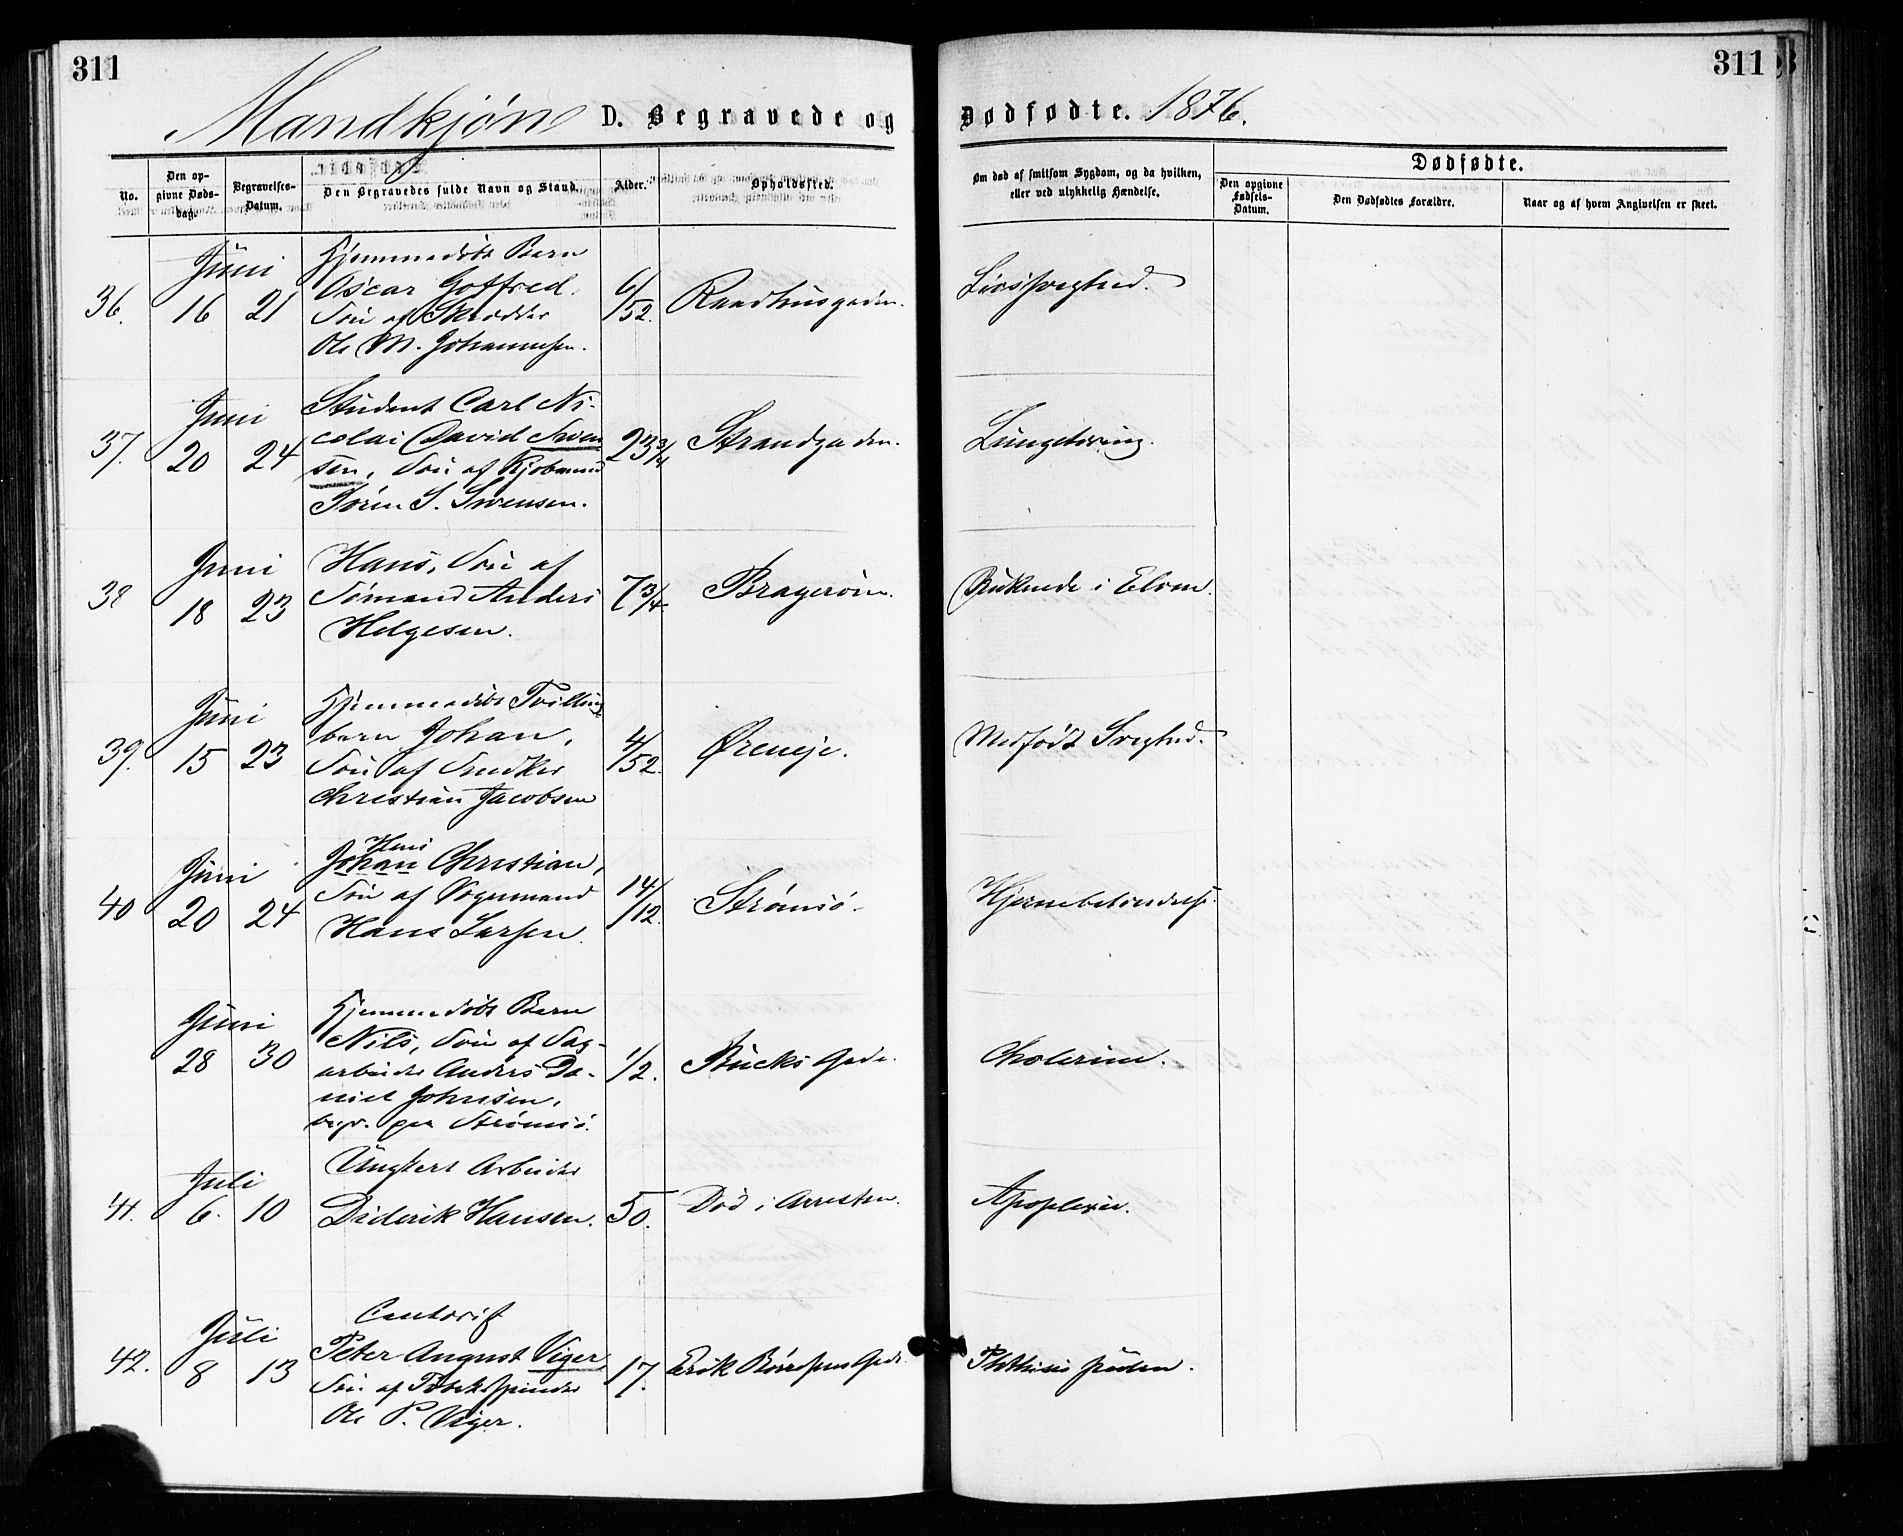 311
311
Mandkjøn D. Begravede og Dødfødte. 1876.
No.
Den opgivne Døds-dag.
Begravelses-Datum.
Den Begravedes fulde Navn og Stand.
Alder.
Opholdssted.
Om død af smitsom Sygdom, og da hvilken, eller ved ulykkelig Hændelse.
Dødfødte.
Den opgivne Fødsels-Datum.
Den Dødfødtes Forældre.
Naar og af hvem Angivelsen er skeet.
36.
Juni
16 21
Hjemmedøbt Barn
Oscar Gotfred,
Søn af Skrædder
Ole M. Johannesen.
6/52.
Raadhusgaden.
Livssvaghed.
37.
Juni
20 24
Student Carl Ni-
colai David Sven-
sen, Søn af Kjøbmand
Søren S. Svensen.
23 3/4
Strandgaden.
Lungetæring.
38
Juni
18 23
Hans, Søn af
Sømand Anders
Helgesen.
7 3/4
Bragerøen.
Druknede i Elven.
39.
Juni
15 23
Hjemmedøbt Tvilling
barn Johan,
Søn af Snedker
Christian Jacobsen
4/52.
Øreneje.
Medfødt Svaghed.
40
Juni
20 24
Hans
Johan Christian,
Søn af Vognmand
Hans Larsen.
14/12.
Strømsø.
Hjernebetændelse.
Juni
28 30
Hjemmedøbt Barn
Nils, Søn af Sag-
arbeider Anders Da-
niel Johnsen,
begr. paa Strømsø.
1/2.
Bucks Gade.
Cholerine.
41.
Juli
6. 10
Ungkarl Arbeider
Diderik Hansen.
50.
Død i Arresten.
Apoplexie.
42.
Juli
8 13
Contorist
Peter August Viger,
Søn af Tobakspinder
Ole P. Viger.
17.
Erik Børresens Gade
Phthisis pulm.